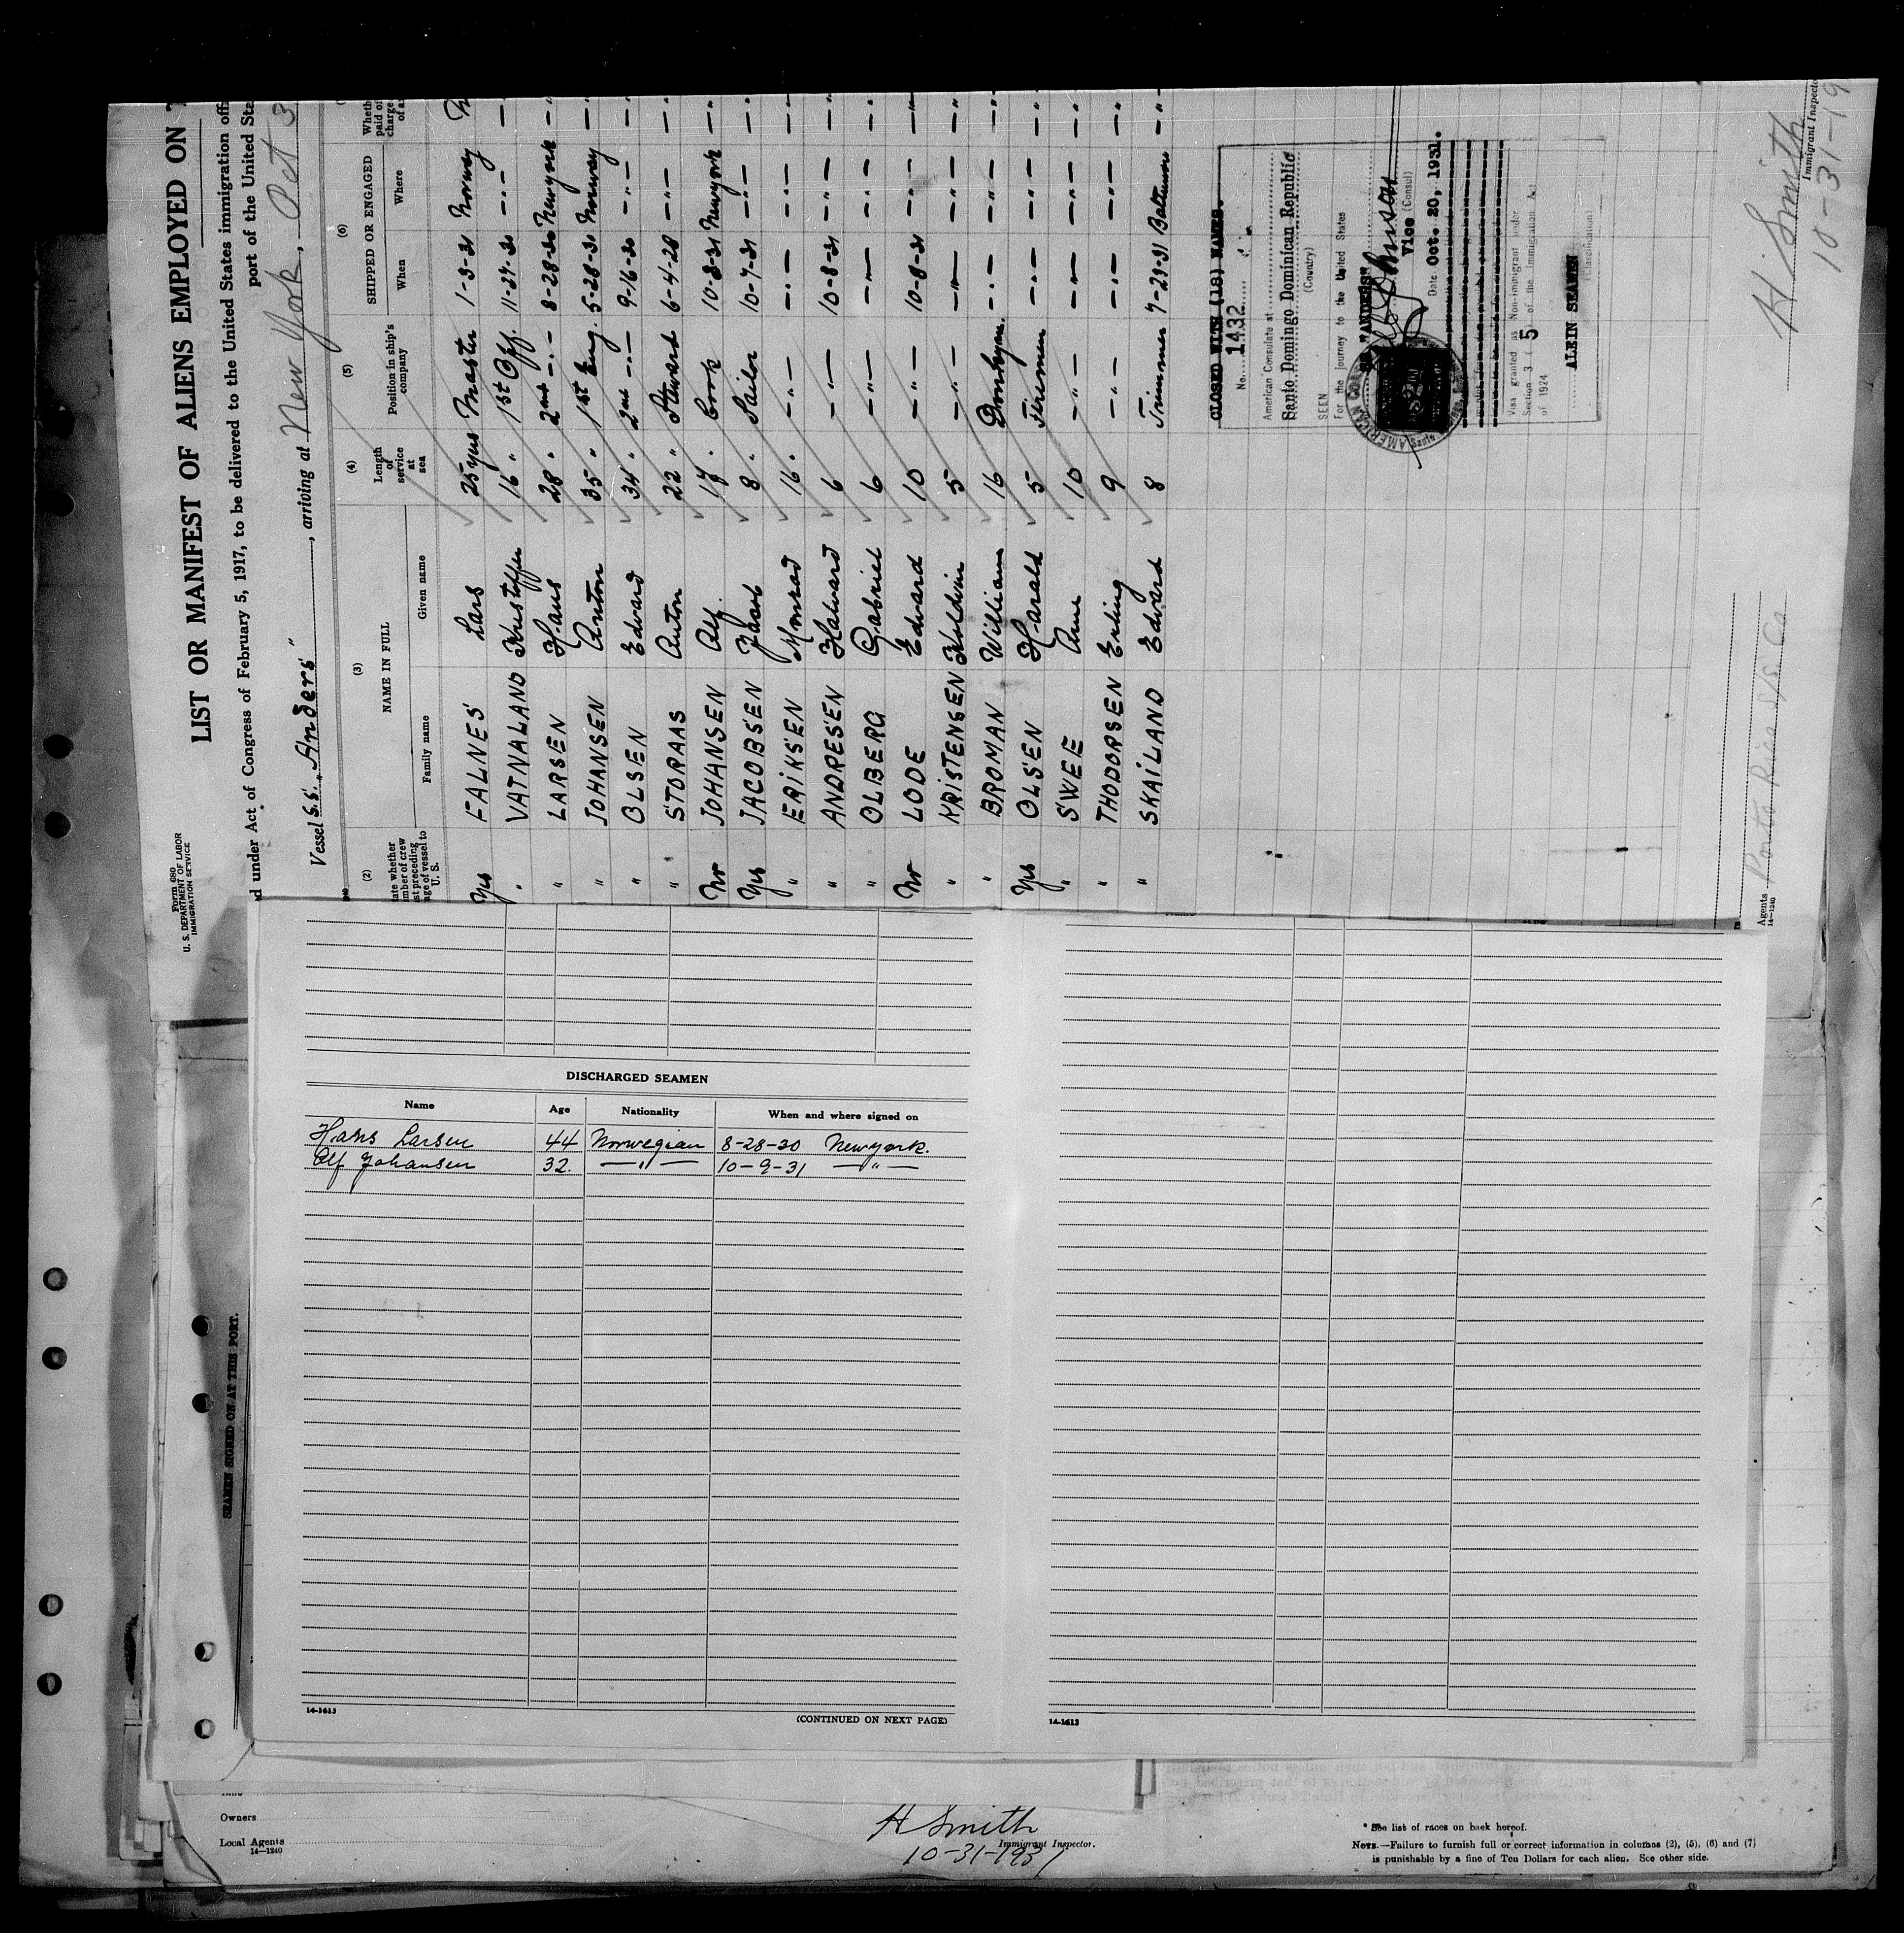 Form 680
U. S. DEPARTMENT OF LABOR
IMMIGRATION SERVICE
LIST OR MANIFEST OF ALIENS EMPLOYED ON
under Act of Congress of February 5, 1917, to be delivered to the United States immigration
port of the United
Vessel S.S. "Anders", arriving at New York,
(2) (3) (4) (5) (6)
NAME IN FULL
SHIPPED OR ENGAGED
Family name Given name Length of service at sea Position in ship's company When Where
Yes FALNES Lars 25 yrs Master 1-3-31 Norway
" VATNALAND 16 " 1st Off. 11-27-30 —"—
" LARSEN Hans 28 " 2nd —"— 8-28-30 Newyork —"—
" JOHANSEN Anton 35 " 1st Eng. 5-28-31 Norway —"—
" OLSEN Edvard 34 " 2nd —"— 9-16-30 —"— —"—
" STORAAS Anton 22 " Steward 6-4-28 —"— —"—
No JOHANSEN Alf. 17 " Cook Newyork —"—
Yes JACOBSEN 8 " Sailor 10-7-31 —"— —"—
" ERIKSEN Monrad 16 " —"— —"— —"— —"—
" ANDRESEN Halvard 6 —"— 10-8-31 —"— —"—
" OLBERG Gabriel 6 —"— —"— —"— —"—
No LODE Edvard 10 —"— 10-8-31 —"— —"—
" KRISTENSEN 5 —"— —"— —"— —"—
" BROMAN William 16 Donkeyman. —"— —"— —"—
Yes OLSEN Harald 5 Firemen —"— —"— —"—
" SWEE 10 —"— —"— —"— —"—
" THODORSEN Erling 9 —"— —"— —"— —"—
" SKAILAND Edvard 8 Trimmer 7-29-31 —"—
CLOSED WITH (18) NAMES.
No. 1432
American Consulate at
Santo Domingo Dominican Republic
(Country)
SEEN
For the journey to the United States
SS "ANDERS"
Vice (Consul)
Date Oct. 20, 1931.
Visa granted as Non-immigrant under
Section 3 ( 5 of the Immigration
of 1924
ALEIN SEAMEN
(Classification)
Agents Porto Rico S/S Co
14—1240
H. Smith
Immigrant
10-31-19
DISCHARGED SEAMEN
Name Age Nationality When and where signed on
Hans Larsen 44 Norwegian 8-28-30 Newyork.
Alf Johansen 32. —"— 10-9-31 —"—
14-1613
(CONTINUED ON NEXT PAGE)
14-1613
SEAMEN SIGNED ON AT THIS PORT.
Owners
Local Agents
14—1240
H Smith
Immigrant Inspector.
10-31-1931
* See list of races on back hereof.
NOTE.—Failure to furnish full or correct information in columns (2), (5), (6) and (7)
is punishable by a fine of Ten Dollars for each alien. See other side.